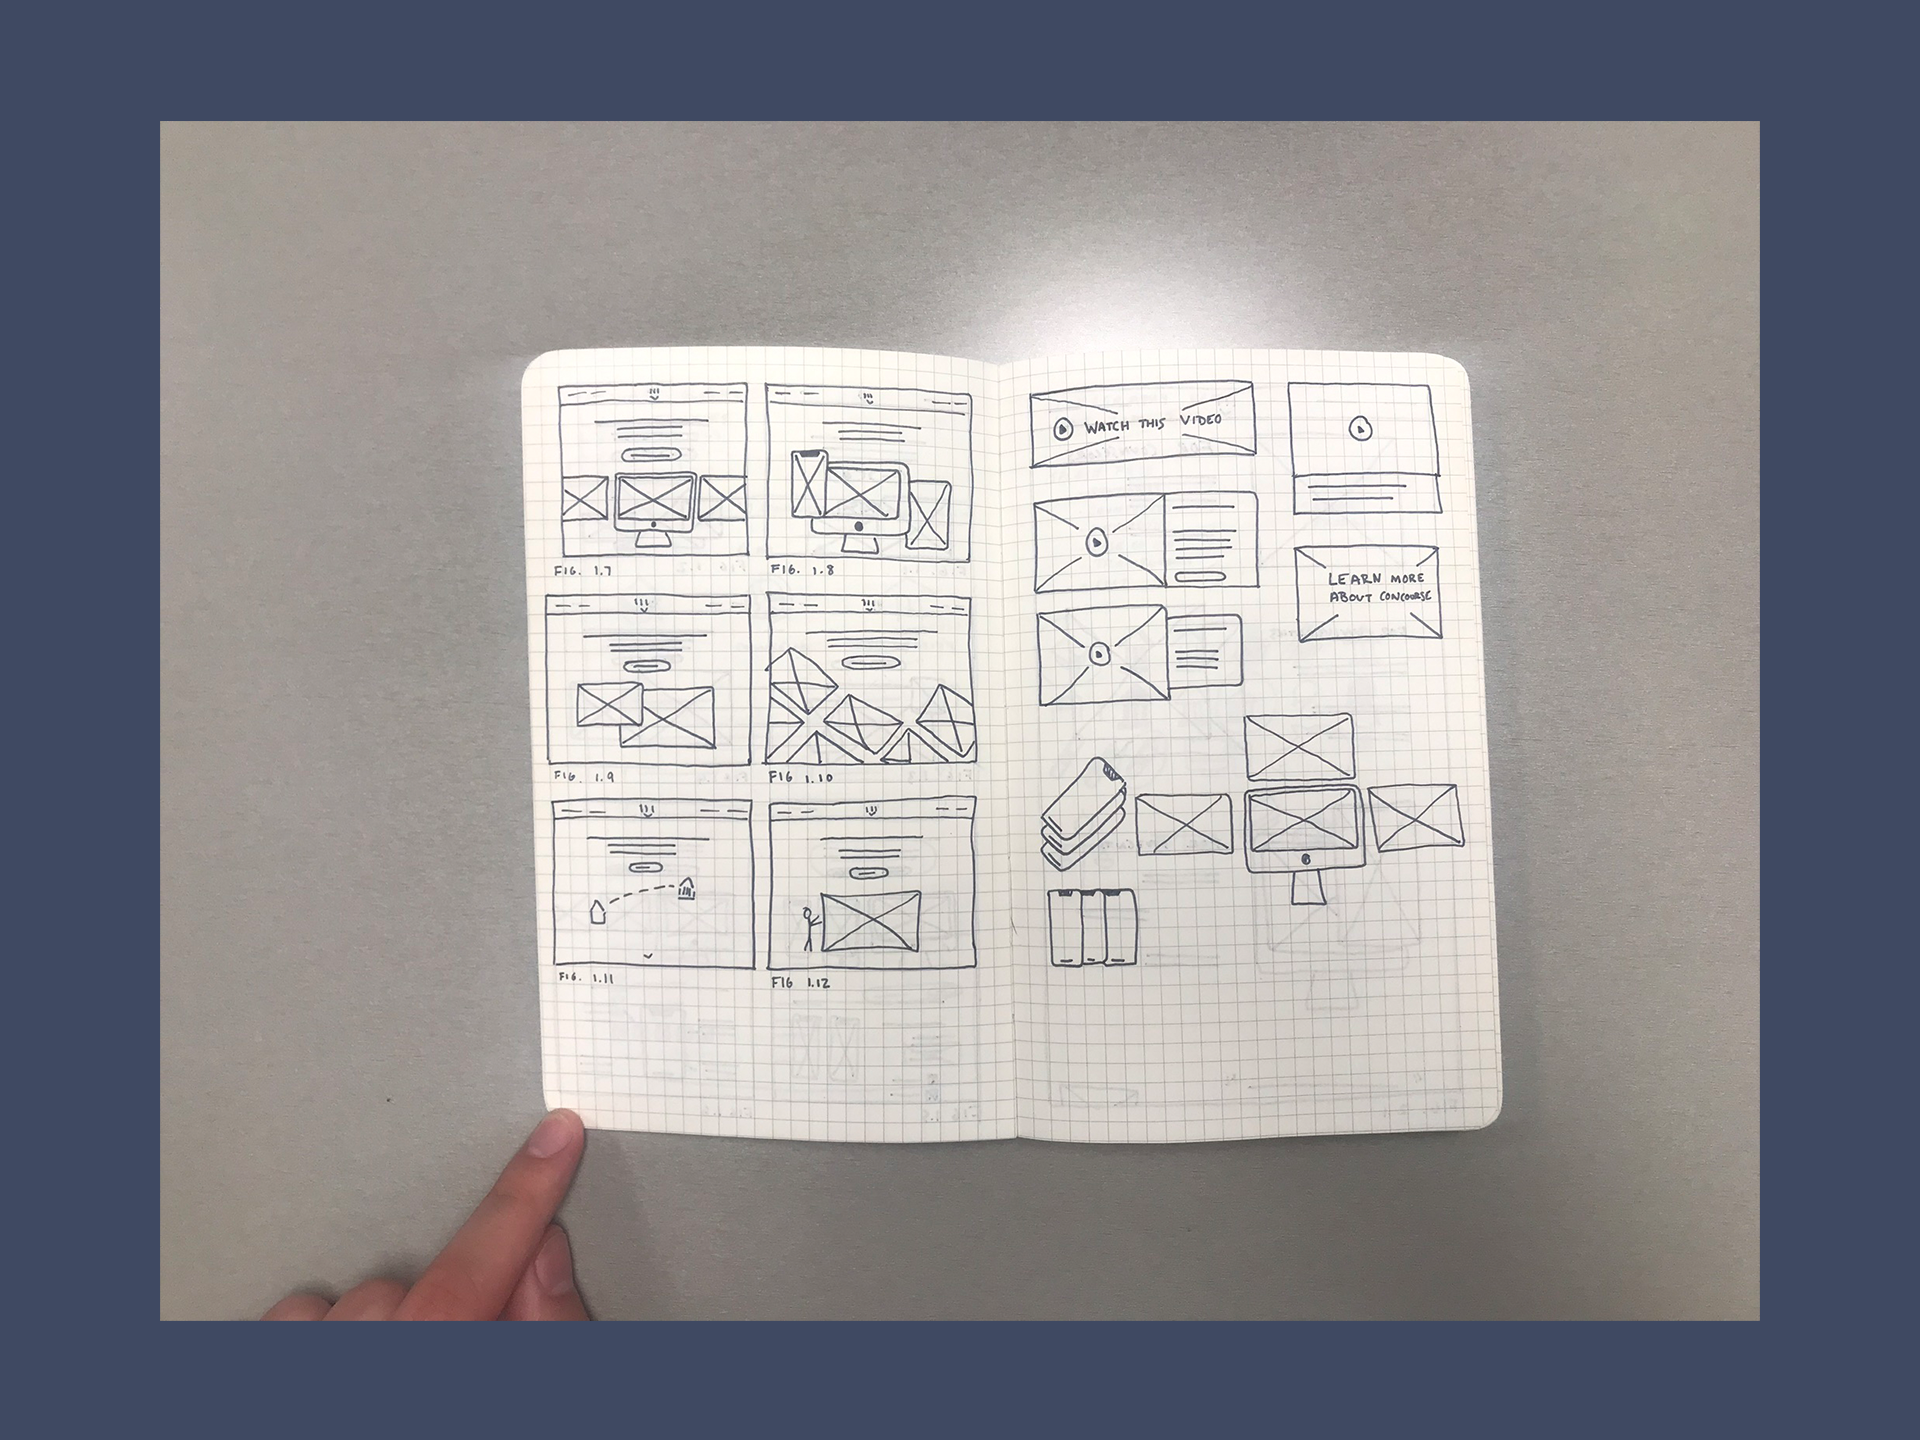 FIG. 1.7
FIG. 1.8
FIG. 1.9
FIG 1.10
FIG. 1.11
FIG 1.12
WATCH THIS VIDEO
LEARN MORE
ABOUT CONCOURSE